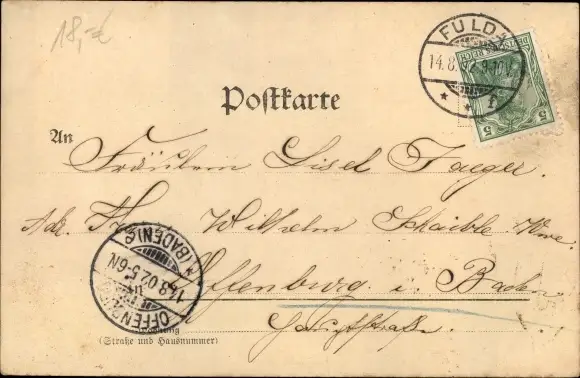 18,-€
FULDA
14.8.
DEUTSCHES REICH
5 5
Postkarte
An
Fräulein Lisel Jaeger.
Adr. Wilhelm Schaible Wwe.
OFFENBURG (BADEN)
14.8.02.5-6N
Offenburg i. Baden
Hauptstraße.
Wohnung
(Straße und Hausnummer)